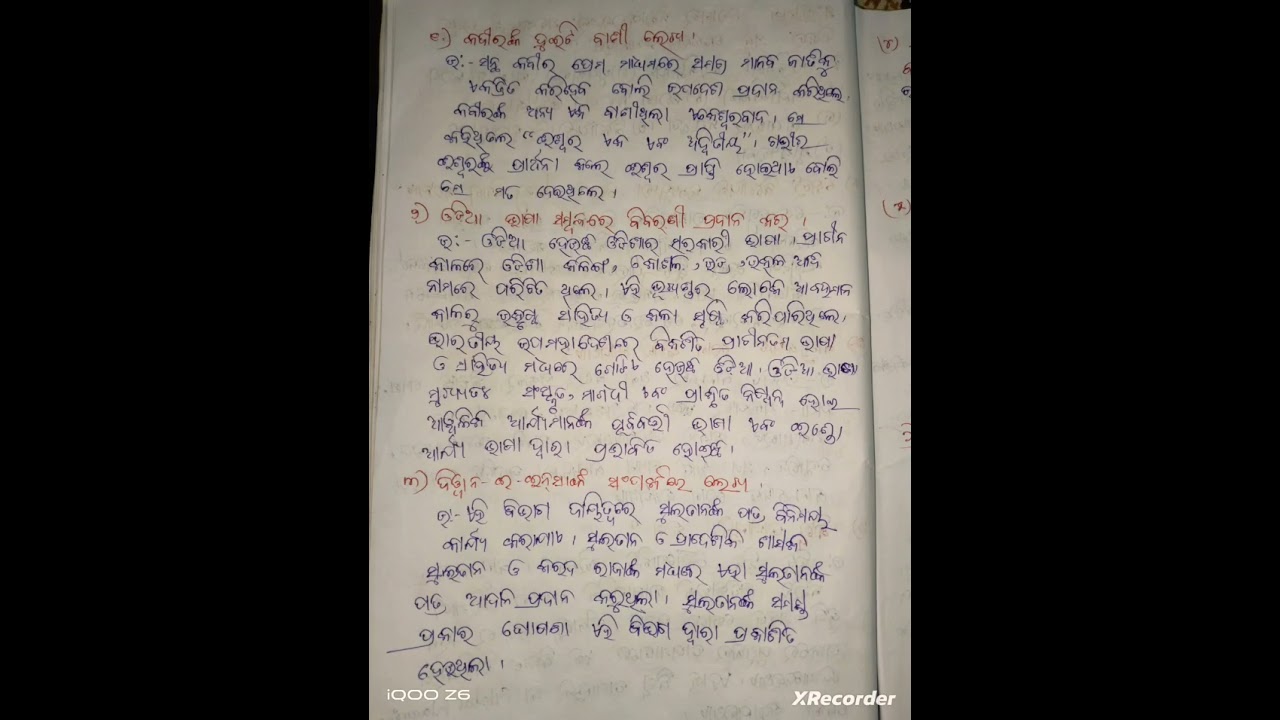 ୧) କବୀରଙ୍କ ଦୁଇଟି ବାଣୀ ଲେଖ।
ଉ:- ସନ୍ଥ କବୀର ପ୍ରେମ ମାଧ୍ୟମରେ ସମଗ୍ର ମାନବ ଜାତିକୁ
ଏକତ୍ରିତ କରିହେବ ବୋଲି ଉପଦେଶ ପ୍ରଦାନ କରିଥିଲେ।
କବୀରଙ୍କ ଅନ୍ୟ ଏକ ବାଣୀଥିଲା ଏକେଶ୍ୱରବାଦ। ସେ
କହିଥିଲେ "ଈଶ୍ୱର ଏକ ଏବଂ ଅଦ୍ୱିତୀୟ"।
ଈଶ୍ୱରଙ୍କୁ ପ୍ରାର୍ଥନା କଲେ ଈଶ୍ୱର ପ୍ରାପ୍ତି ହୋଇଥାଏ ବୋଲି
ସେ ମତ ଦେଇଥିଲେ।
୨) ଓଡ଼ିଆ ଭାଷା ସମ୍ପର୍କରେ ବିବରଣୀ ପ୍ରଦାନ କର।
ଉ:- ଓଡ଼ିଆ ହେଉଛି ଓଡ଼ିଶାର ସରକାରୀ ଭାଷା। ପ୍ରାଚୀନ
କାଳରେ ଓଡ଼ିଶା କଳିଙ୍ଗ, କୋଶଳ, ଉଡ୍ର, ଉତ୍କଳ ଆଦି
ନାମରେ ପରିଚିତ ଥିଲେ। ଏହି ଭୂଖଣ୍ଡର ଲୋକେ ଆବହମାନ
କାଳରୁ ଉତ୍କୃଷ୍ଟ ସାହିତ୍ୟ ଓ କଳା ସୃଷ୍ଟି କରିପାରିଥିଲେ।
ଭାରତୀୟ ଉପମହାଦେଶରେ ବିକଶିତ ପ୍ରାଚୀନତମ ଭାଷା
ଓ ସାହିତ୍ୟ ମଧ୍ୟରେ ଗୋଟିଏ ହେଉଛି ଓଡ଼ିଆ। ଓଡ଼ିଆ ଭାଷା
ମୁଖ୍ୟତଃ ସଂସ୍କୃତ, ମାଗଧୀ ଏବଂ ପ୍ରାକୃତ
ଆର୍ଯ୍ୟମାନଙ୍କ ପୂର୍ବବର୍ତ୍ତୀ ଭାଷା ଏବଂ ଇଣ୍ଡୋ
ଆର୍ଯ୍ୟ ଭାଷା ଦ୍ୱାରା ପ୍ରଭାବିତ ହୋଇଛି।
୩) ଦିୱାନ-ଇ-ଇନ୍‌ସା ସଂପର୍କରେ ଲେଖ।
ଉ:- ଏହି ବିଭାଗ ଦାୟିତ୍ୱରେ ସୁଲତାନଙ୍କ ପତ୍ର ବିନିମୟ
କାର୍ଯ୍ୟ କରାଯାଏ। ସୁଲତାନ ଓ ପ୍ରାଦେଶିକ ଶାସକ
ସୁଲତାନ ଓ କରଦ ରାଜାଙ୍କ ମଧ୍ୟରେ ଏହା ସୁଲତାନଙ୍କ
ପତ୍ର ଆଦାନ ପ୍ରଦାନ କରୁଥିଲା। ସୁଲତାନଙ୍କ ସମସ୍ତ
ପ୍ରକାର ଘୋଷଣା ଏହି ବିଭାଗ ଦ୍ୱାରା ପ୍ରକାଶିତ
ହେଉଥିଲା।
iQOO Z6
XRecorder